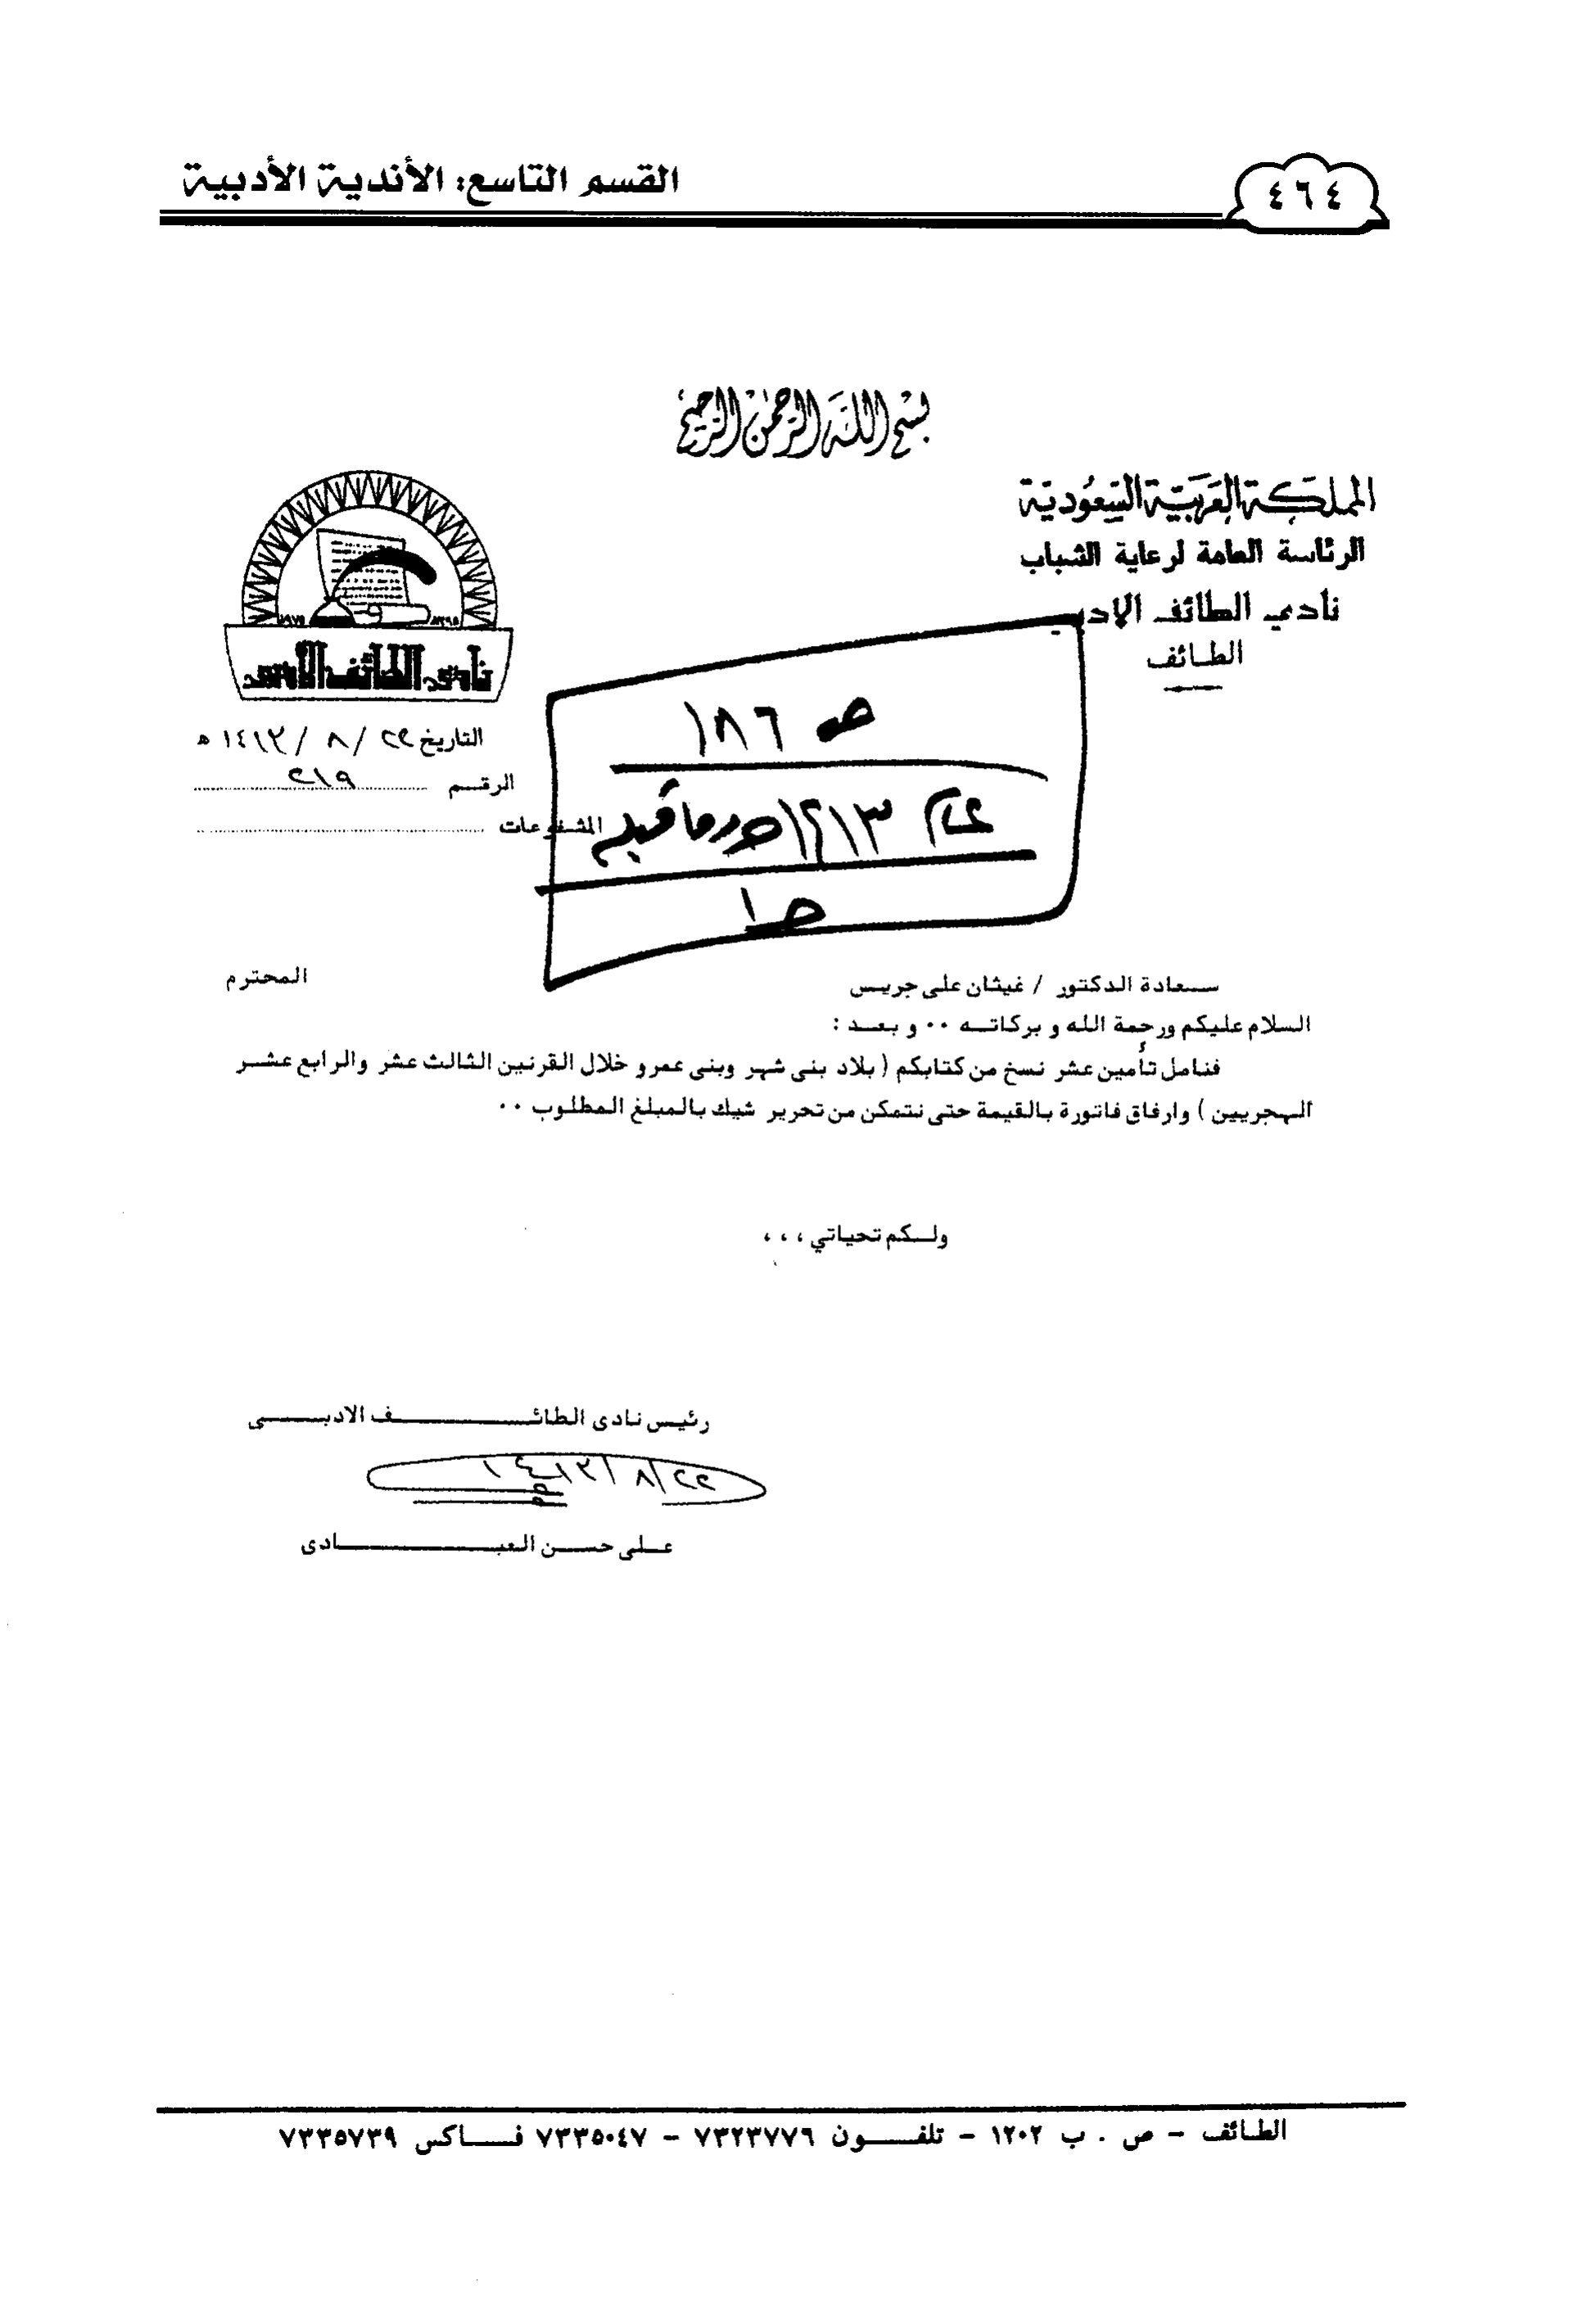 القسم التاسع: الأندية الأدبية
٤٦٤
بسم الله الرحمن الرحيم
المملكة العربية السعودية
الرئاسة العامة لرعاية الشباب
نادي الطائف الادبي
الطائف
١٣٩٥هـ
١٩٧٥
نادي الطائف الأدبي
التاريخ ٢٢ / ٨ / ١٤١٣ هـ
الرقم ٢١٩
المشفوعات
ص ١٨٦
عام ١٤١٣هـ وما قبله
ص١
سعادة الدكتور / غيثان على جريس المحترم
السلام عليكم ورحمة الله وبركاته ٠٠ وبعد :
فنامل تأمين عشر نسخ من كتابكم ( بلاد بنى شهر وبنى عمرو خلال القرنين الثالث عشر والرابع عشر
الهجريين ) وارفاق فاتورة بالقيمة حتى نتمكن من تحرير شيك بالمبلغ المطلوب ٠٠
ولكم تحياتي ،،،
رئيس نادى الطائف الادبى
٢٢/٨/١٤١٣
على حسن العبادى
الطائف - ص . ب ١٢٠٢ - تلفون ٧٣٢٣٧٧٦ - ٧٣٣٥٠٤٧ فاكس ٧٣٣٥٧٣٩